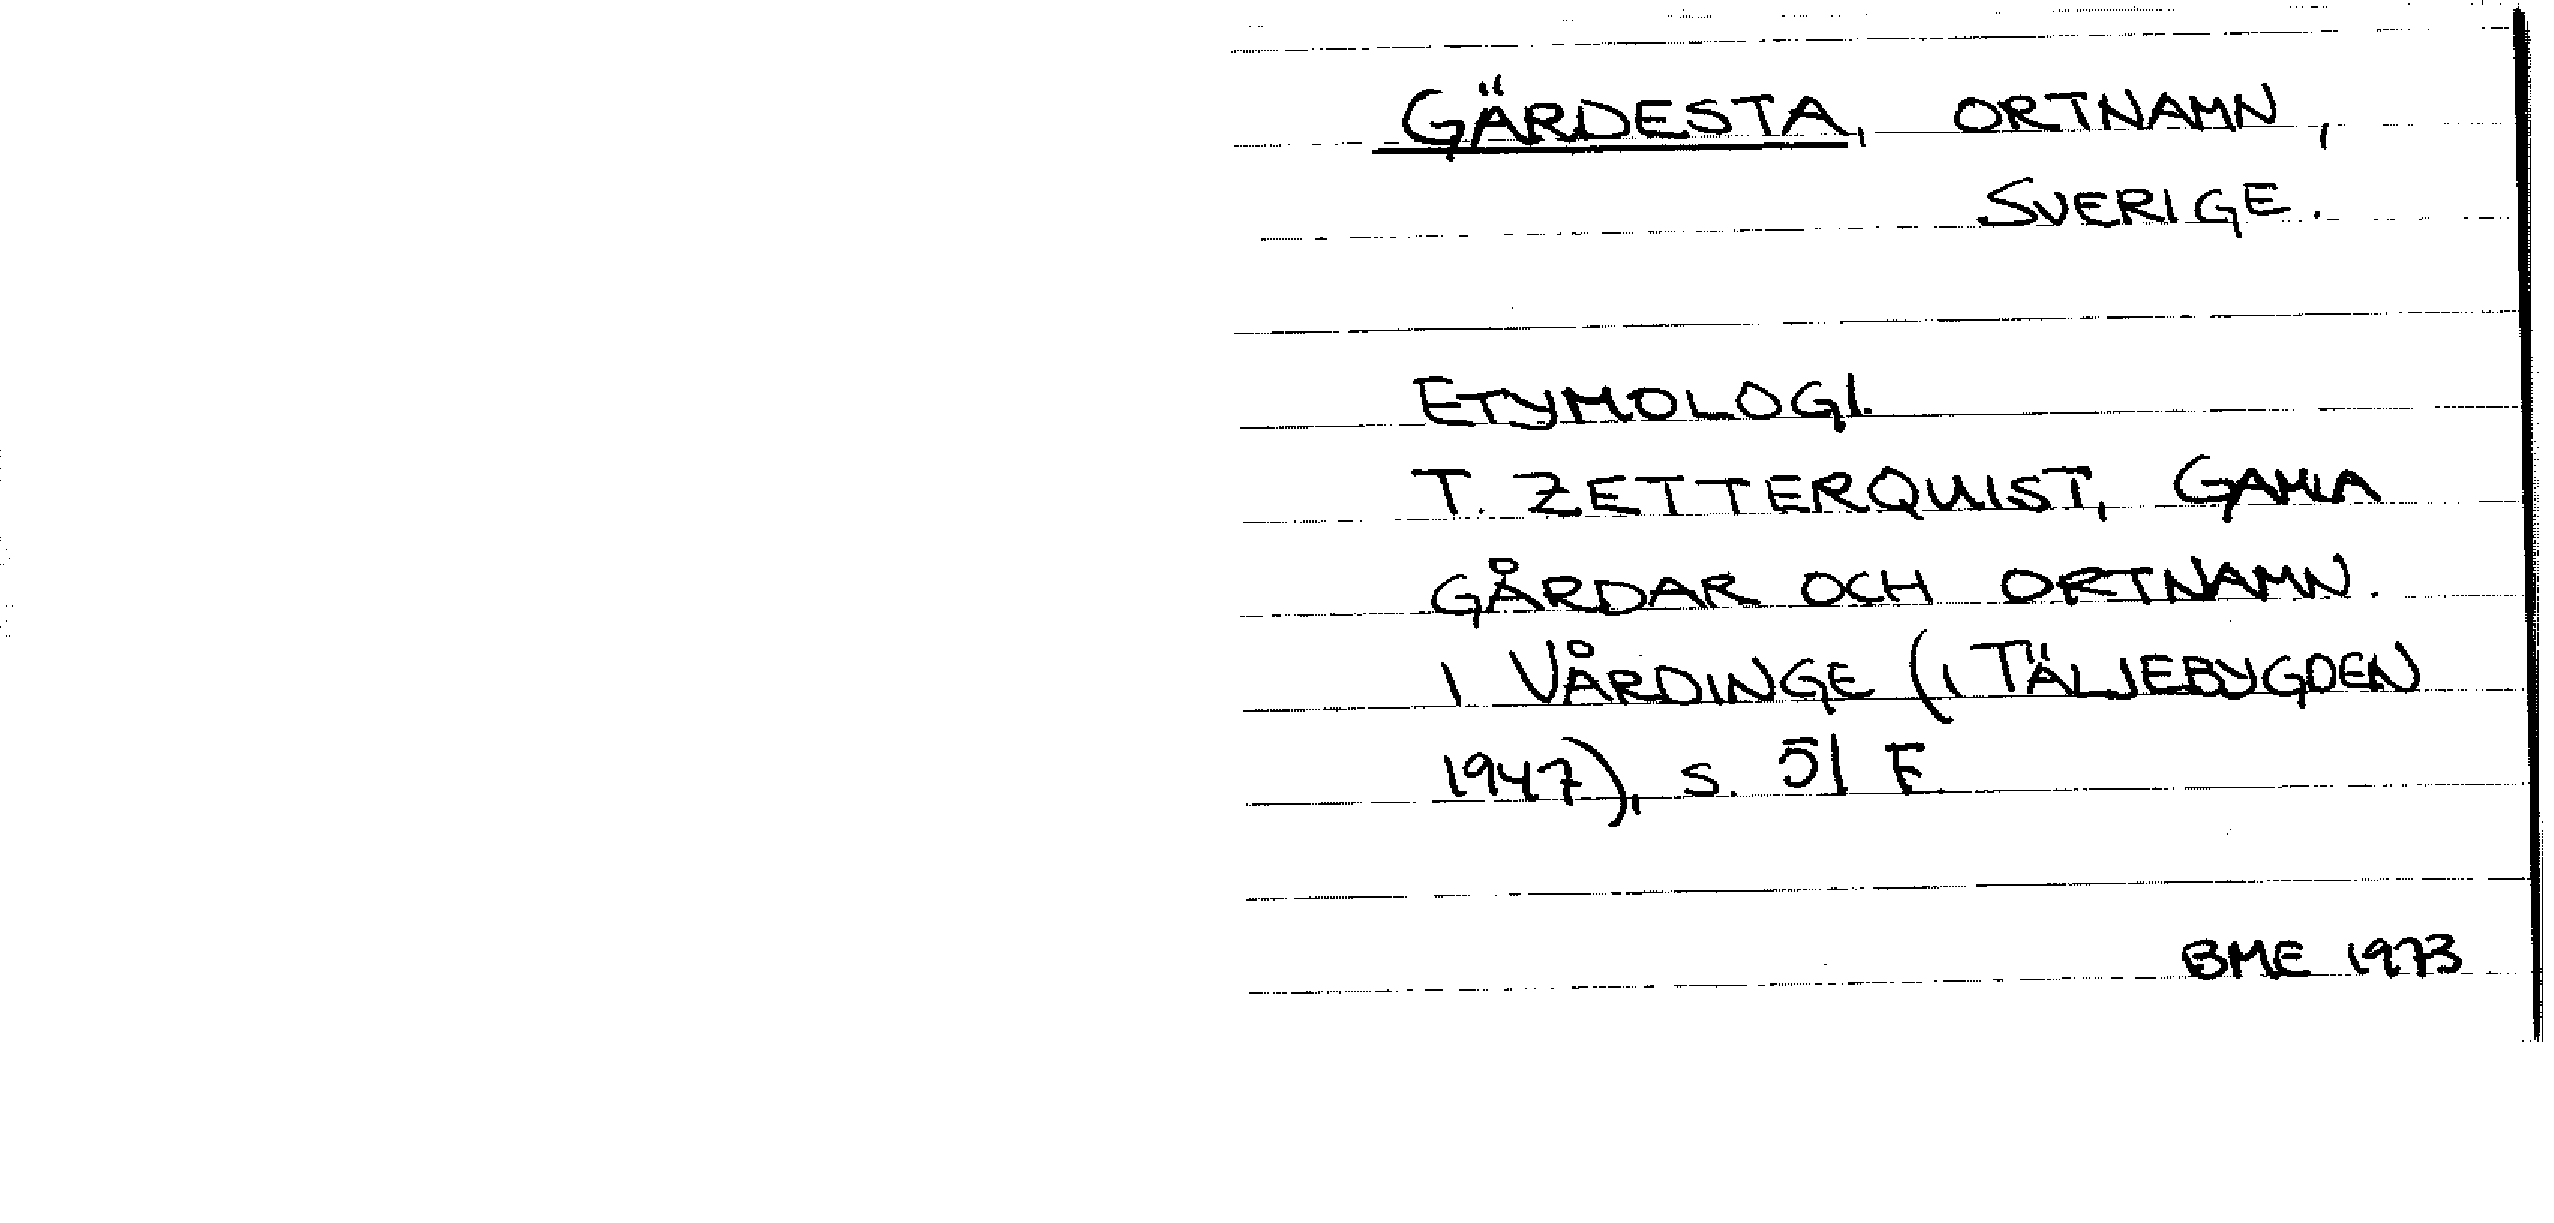 GÄRDESTA, ORTNAMN,
SVERIGE.
ETYMOLOGI.
T. ZETTERQUIST, GAMLA
GÅRDAR OCH ORTNAMN.
I VÅRDINGE (I TÄLJEBYGDEN
1947), S. 51 F.
BME 1973